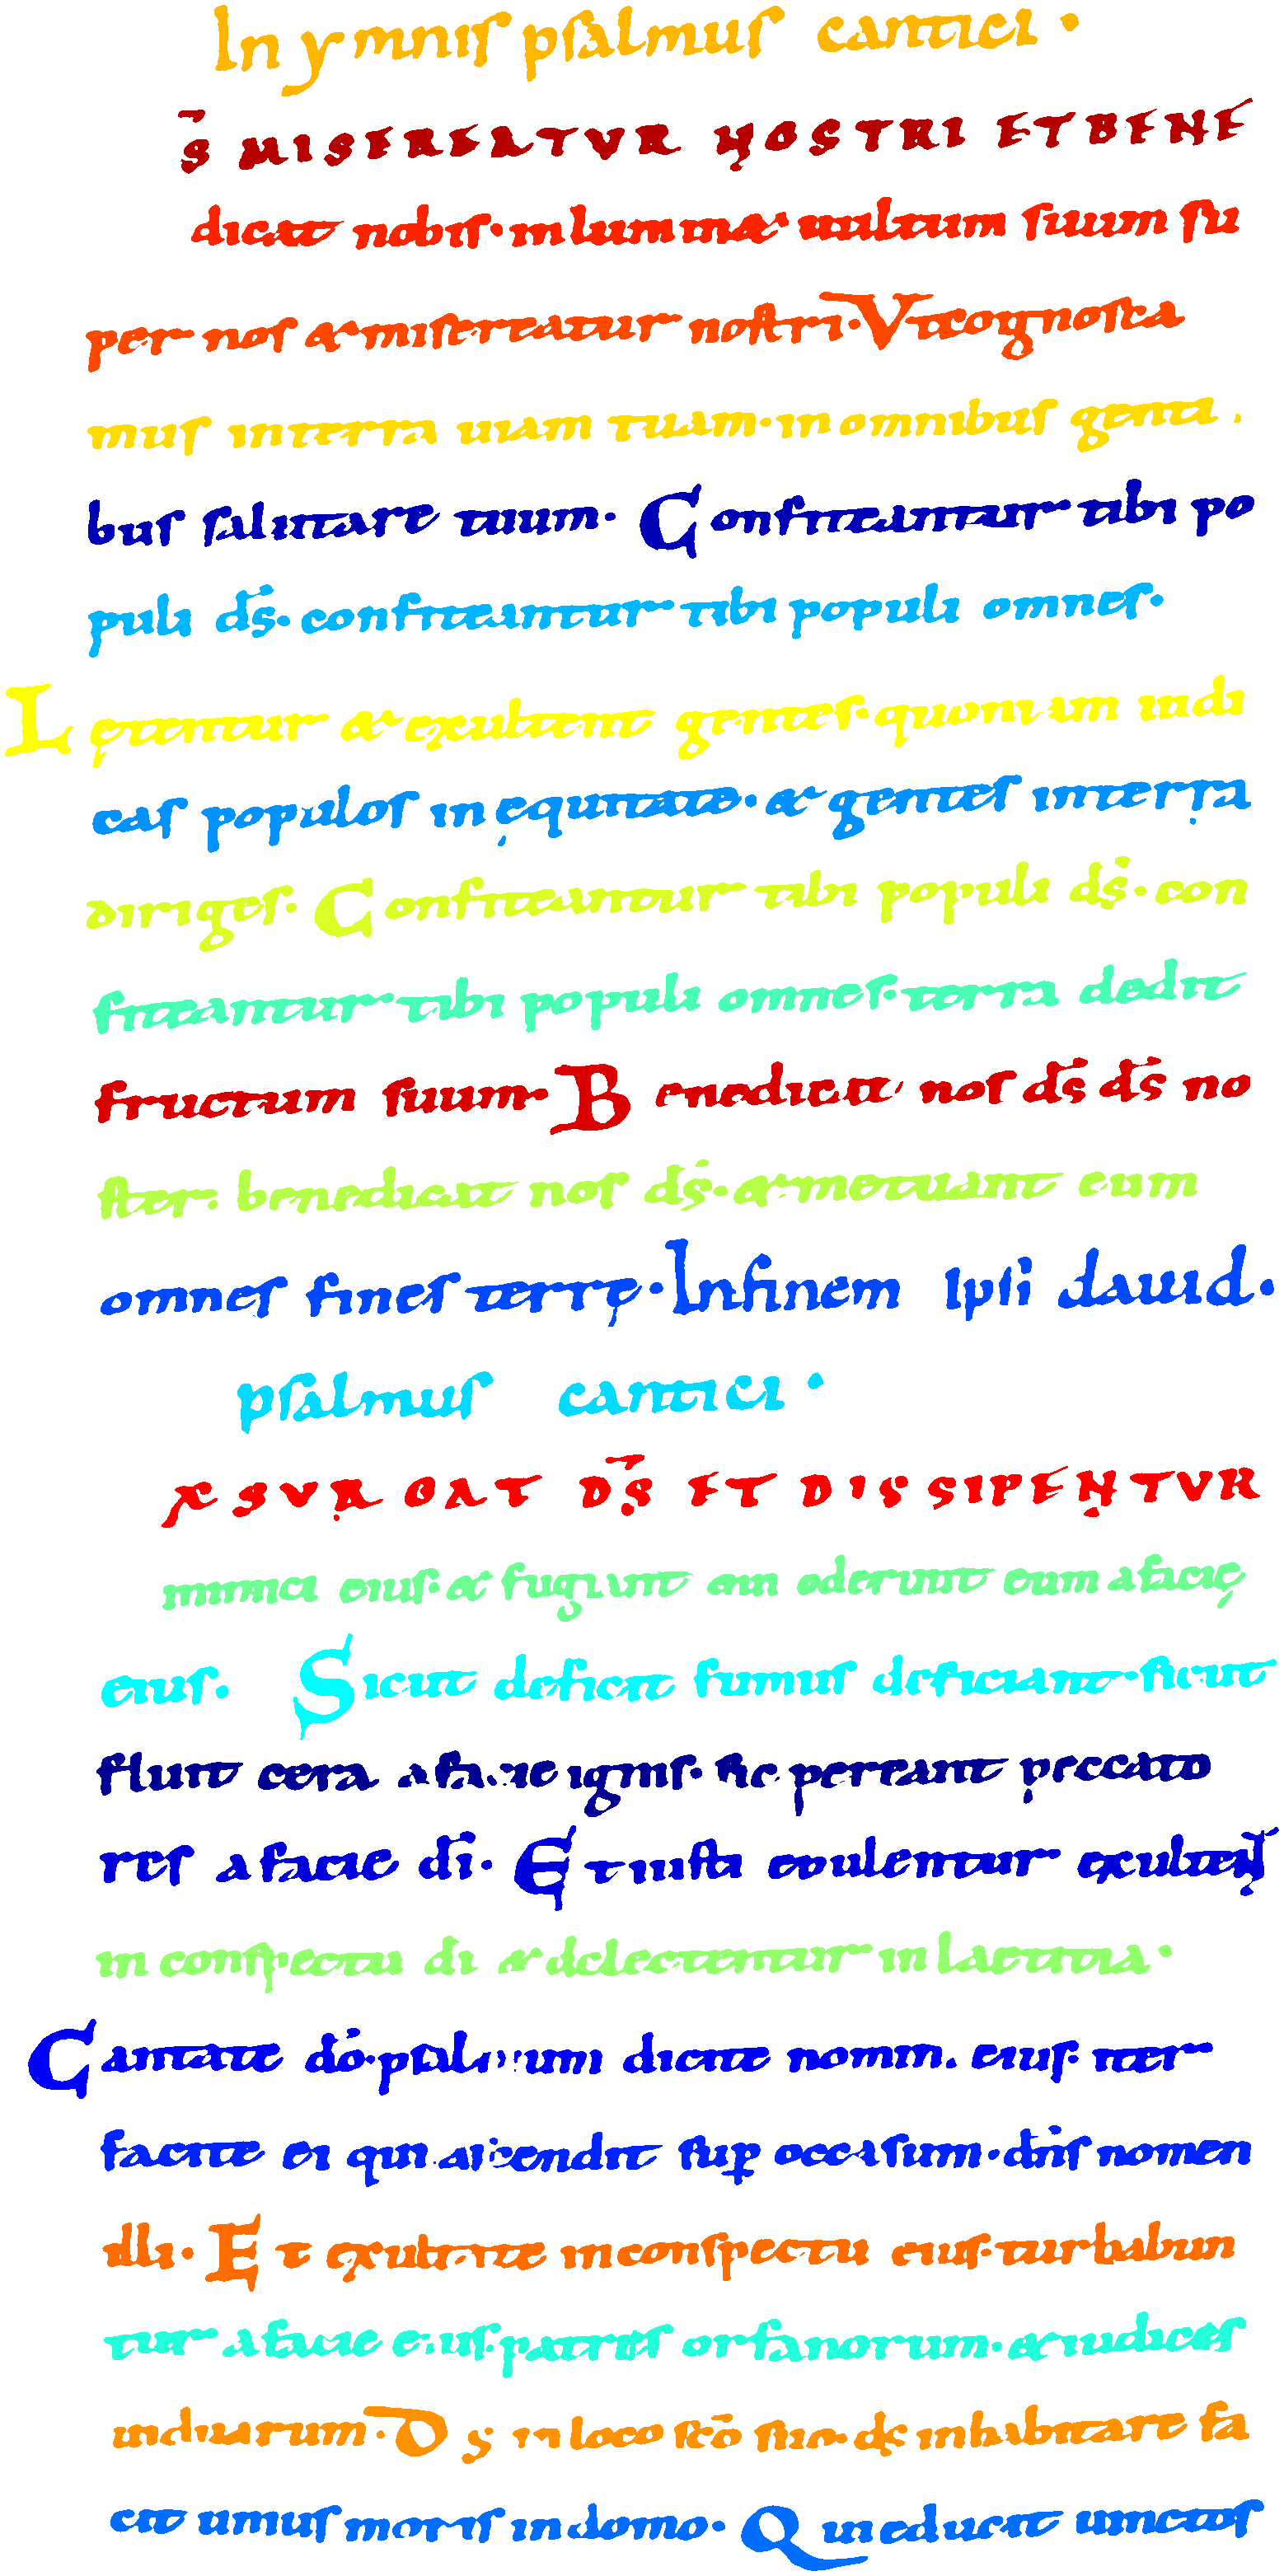 In ymnis psalmus cantici ·
s̄ MISEREATVR NOSTRI ET BENE
dicat nobis · inluminæ uultum suum su
per nos & misereatur nostri · Vt cognosca
mus in terra uiam tuam · in omnibus genti .
bus salutare tuum · Confiteantur tibi po
puli dš · confiteantur tibi populi omnes ·
Lętentur & exultent gentes · quoniam iudi
cas populos in ęquitate · & gentes in terra
diriges · Confiteantur tibi populi dš · con
fiteantur tibi populi omnes · terra dedit
fructum suum · Benedicat nos dš dš no
ster · benedicat nos dš · & metuant eum
omnes fines terrę · In finem Ipsi dauid ·
psalmus cantici ·
EXSVRGAT DS̄ ET DISSIPENTVR
inimici eius · & fugiant qui oderunt eum a facię
eius · Sicut deficit fumus deficiant · sicut
fluit cera a facie ignis · sic pereant peccato
res a facie dī · Et iusti epulentur exultent
in conspectu dī & delectentur in laetitia ·
Cantate dō · psalmum dicite nomini eius · iter
facite ei qui ascendit sup occasum · dn̄s nomen
illi · Et exultate in conspectu eius · turbabun
tur a facie eius · patres orfanorum · & iudices
uiduarum · Ds in loco scō suo · ds inhabitare fa
cit unius moris in domo · Qui educit uinctos